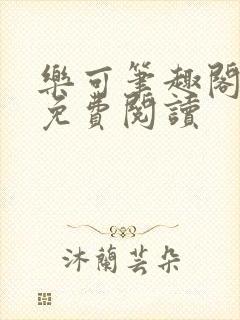 樂可筆趣閣
免費閱讀
沐蘭芸朵